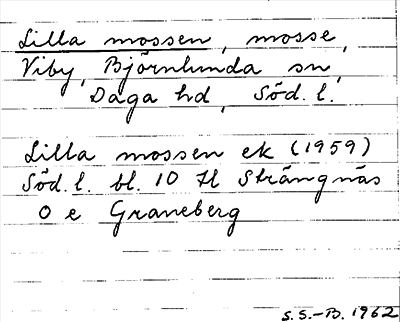 Lilla mossen, mosse,
Viby, Björnlunda sn,
Daga hd, Söd. l.
Lilla mossen ek (1959)
Söd. l. bl. 10 H Strängnäs
O e Graneberg
S.S.-B. 1962